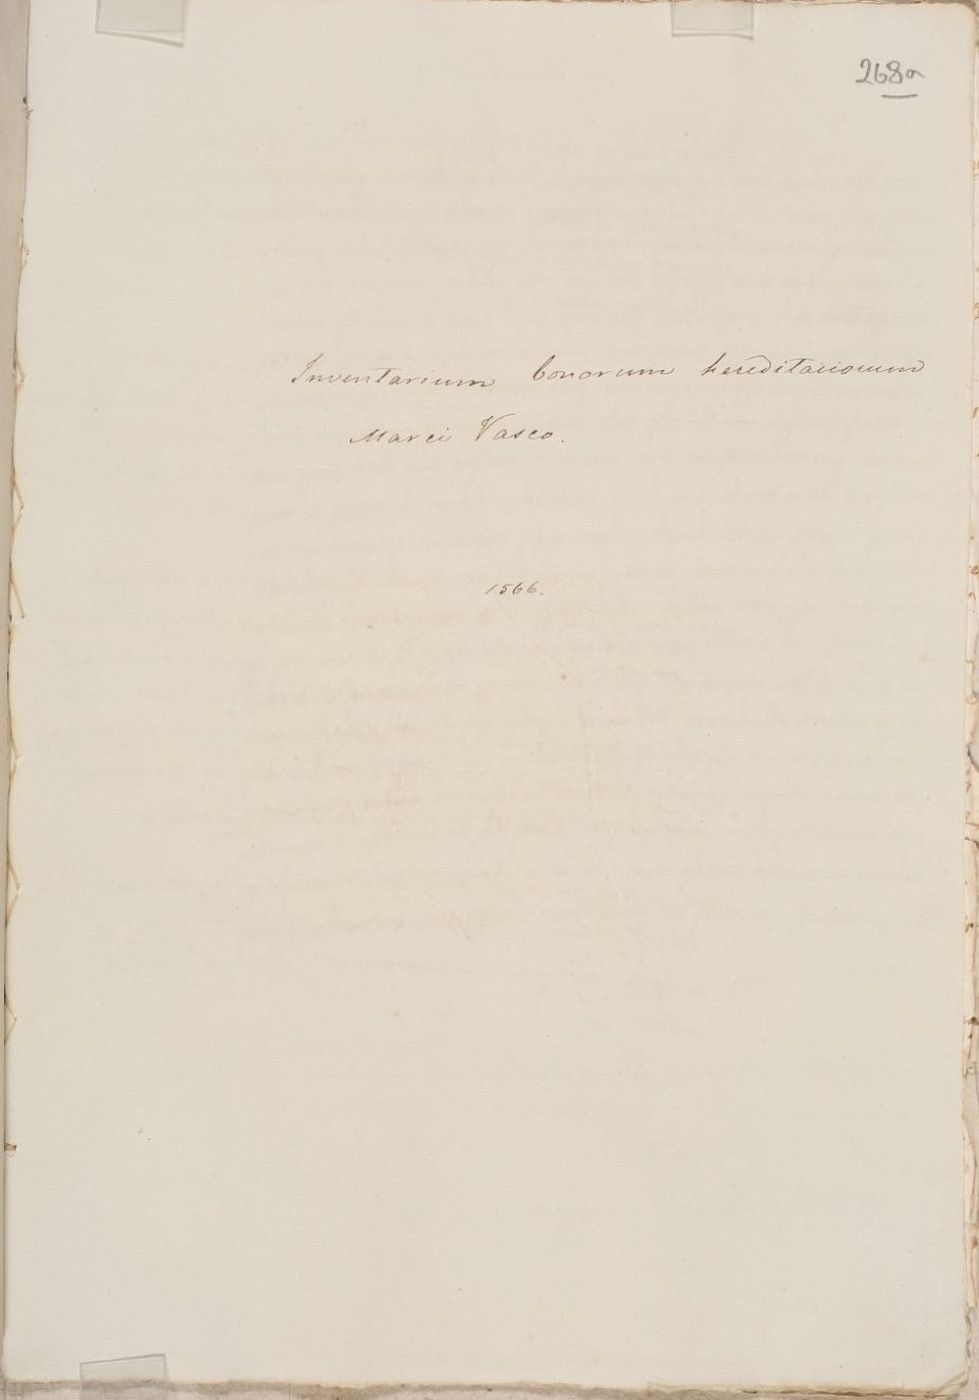 268a
Inventarium bonorum hereditariorum
Marci Vasco.
1566.